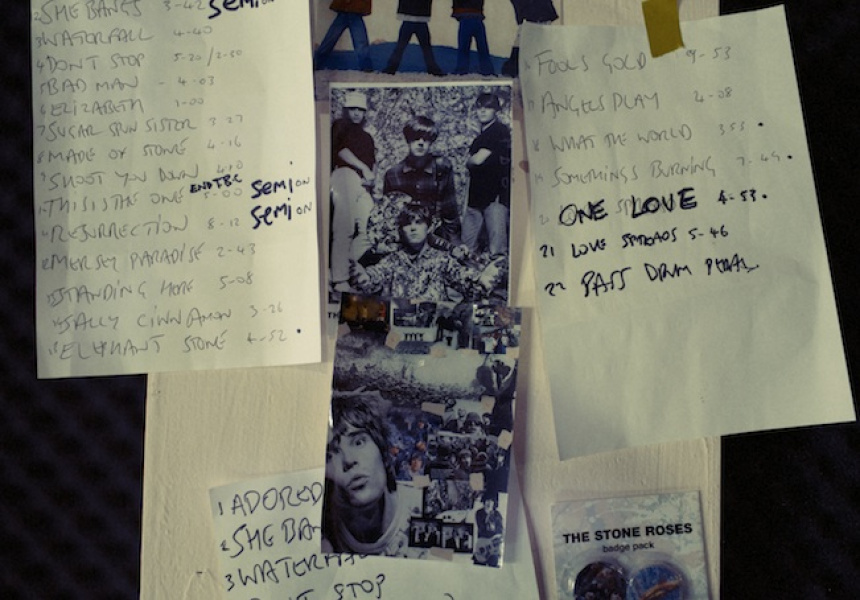 2 SHE BANGS 3-42 SEMI ON
3 WATERFALL 4-40
4 DON'T STOP 5-20/3-50
5 BAD MAN - 4-03
6 ELIZABETH 1-00
7 SUGAR SPUN SISTER 3 27
8 MADE OF STONE 4-16
9 SHOOT YOU DOWN 4-10
THIS IS THE ONE END TBC 5-00 SEMI ON
RESURRECTION 8-12 SEMI ON
MERSEY PARADISE 2-43
STANDING HERE 5-08
SALLY CINNAMON 3-26
ELEPHANT STONE 4-52 •
FOOLS GOLD 9-53
ANGELS PLAY 4-08
WHAT THE WORLD 3 55 •
SOMETHINGS BURNING 7-49 •
ONE LOVE 4-53 •
21 LOVE SPREADS 5-46
22 BASS DRUM
1 ADORED
2 SHE BAN
3 WATERFA
DON'T STOP
THE STONE ROSES
badge pack